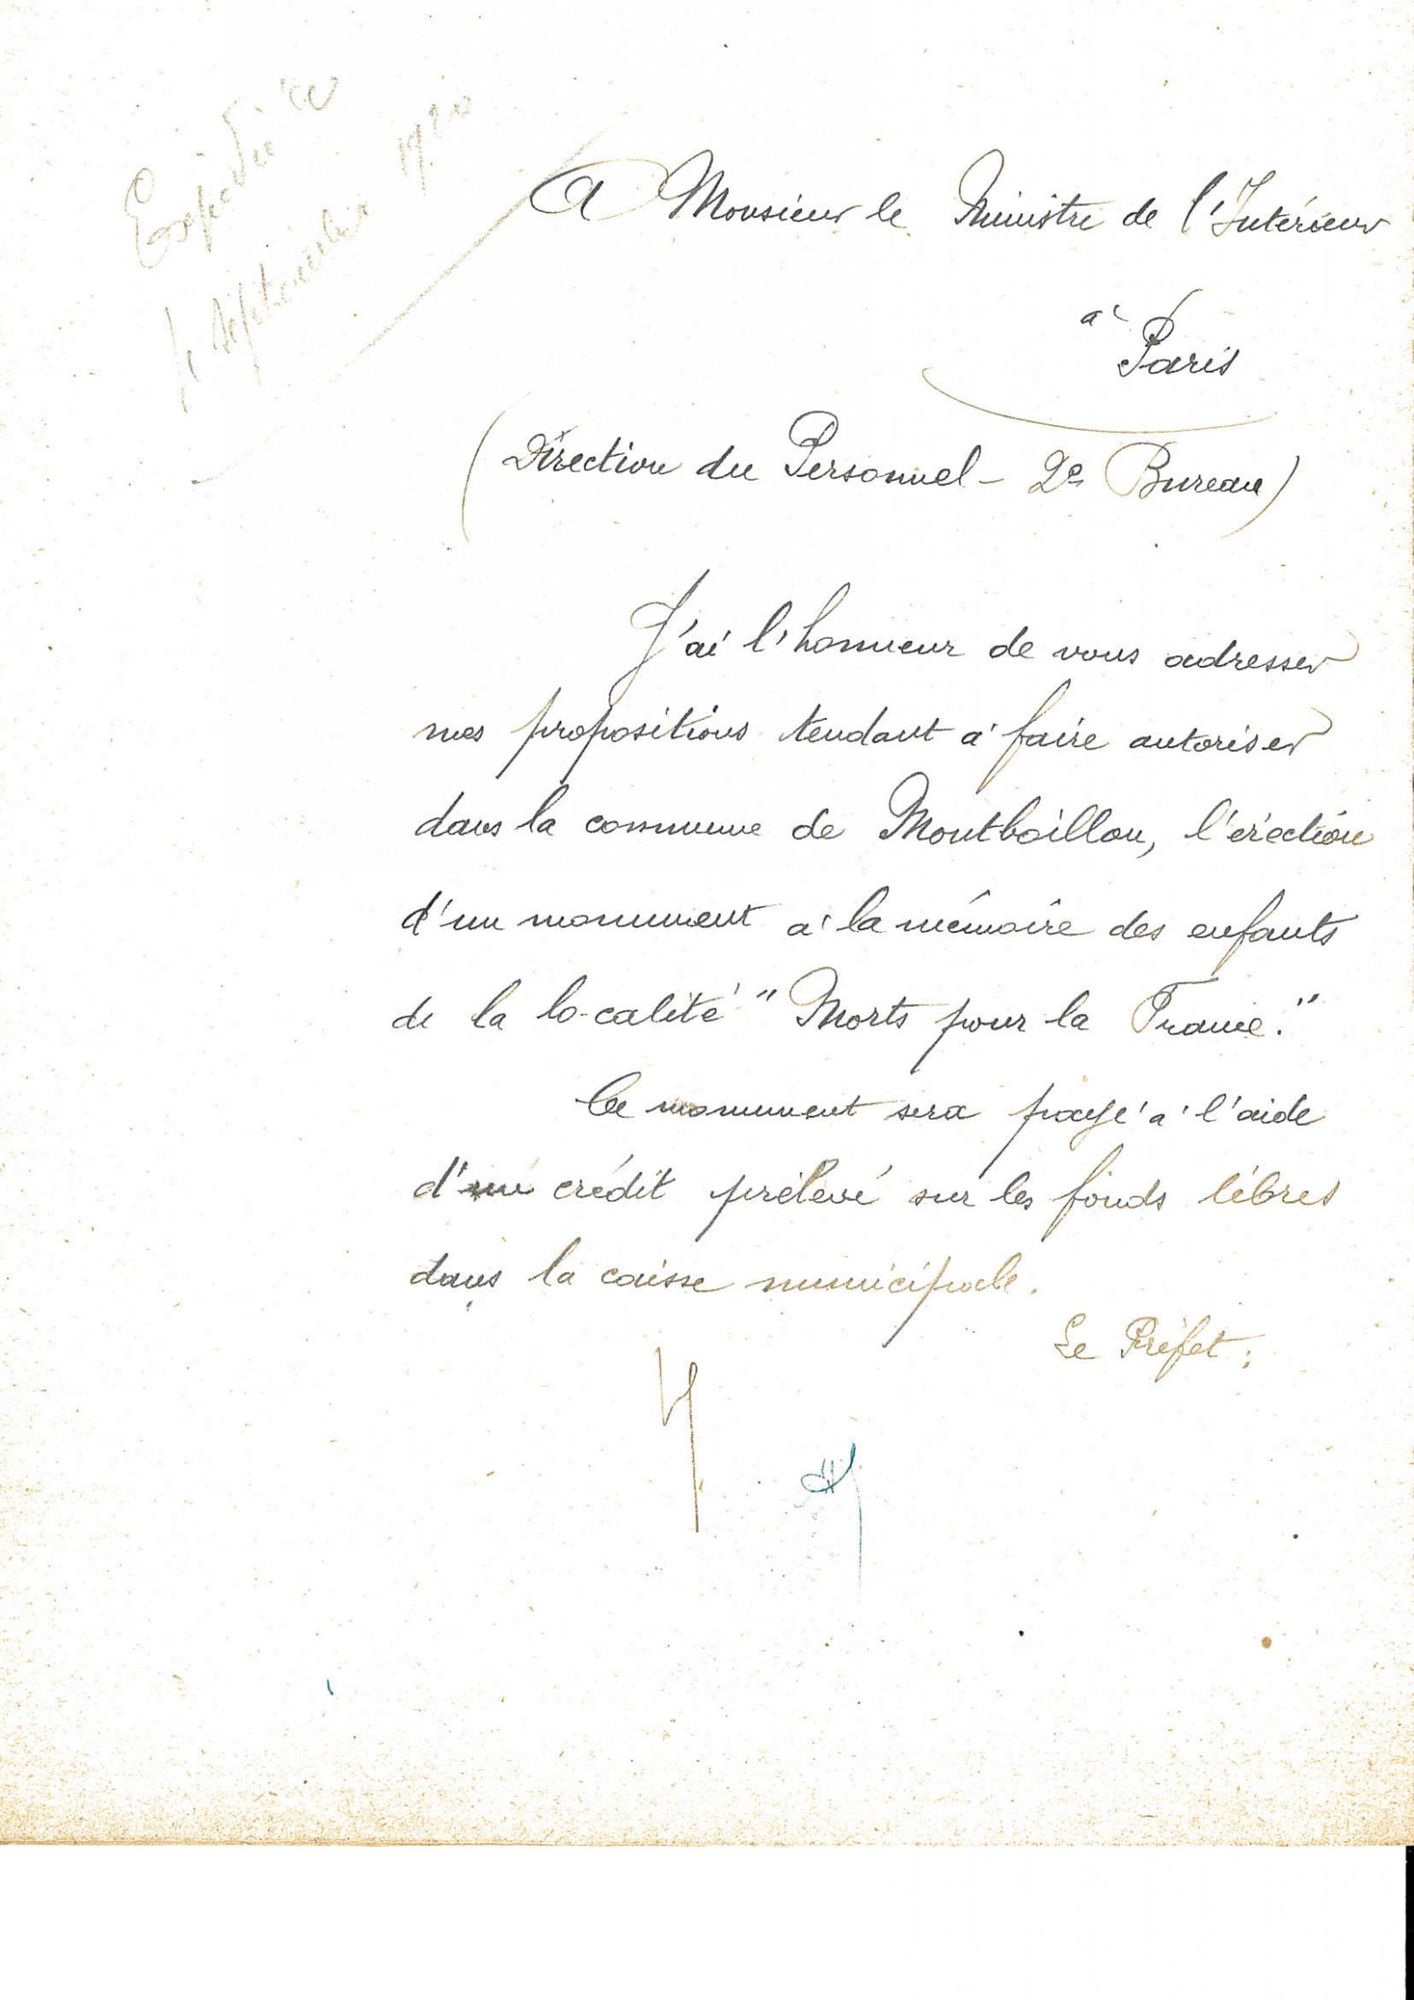 Expédiée
septembre 1920
A Monsieur le Ministre de l'Intérieur
à
Paris
(Direction du Personnel - 2e Bureau)
J'ai l'honneur de vous adresser
mes propositions tendant à faire autoriser
dans la commune de Montboillon, l'érection
d'un monument à la mémoire des enfants
de la lo-calité "Morts pour la France."
Ce monument sera payé à l'aide
d'un crédit prélevé sur les fonds libres
dans la caisse municipale.
Le Préfet;